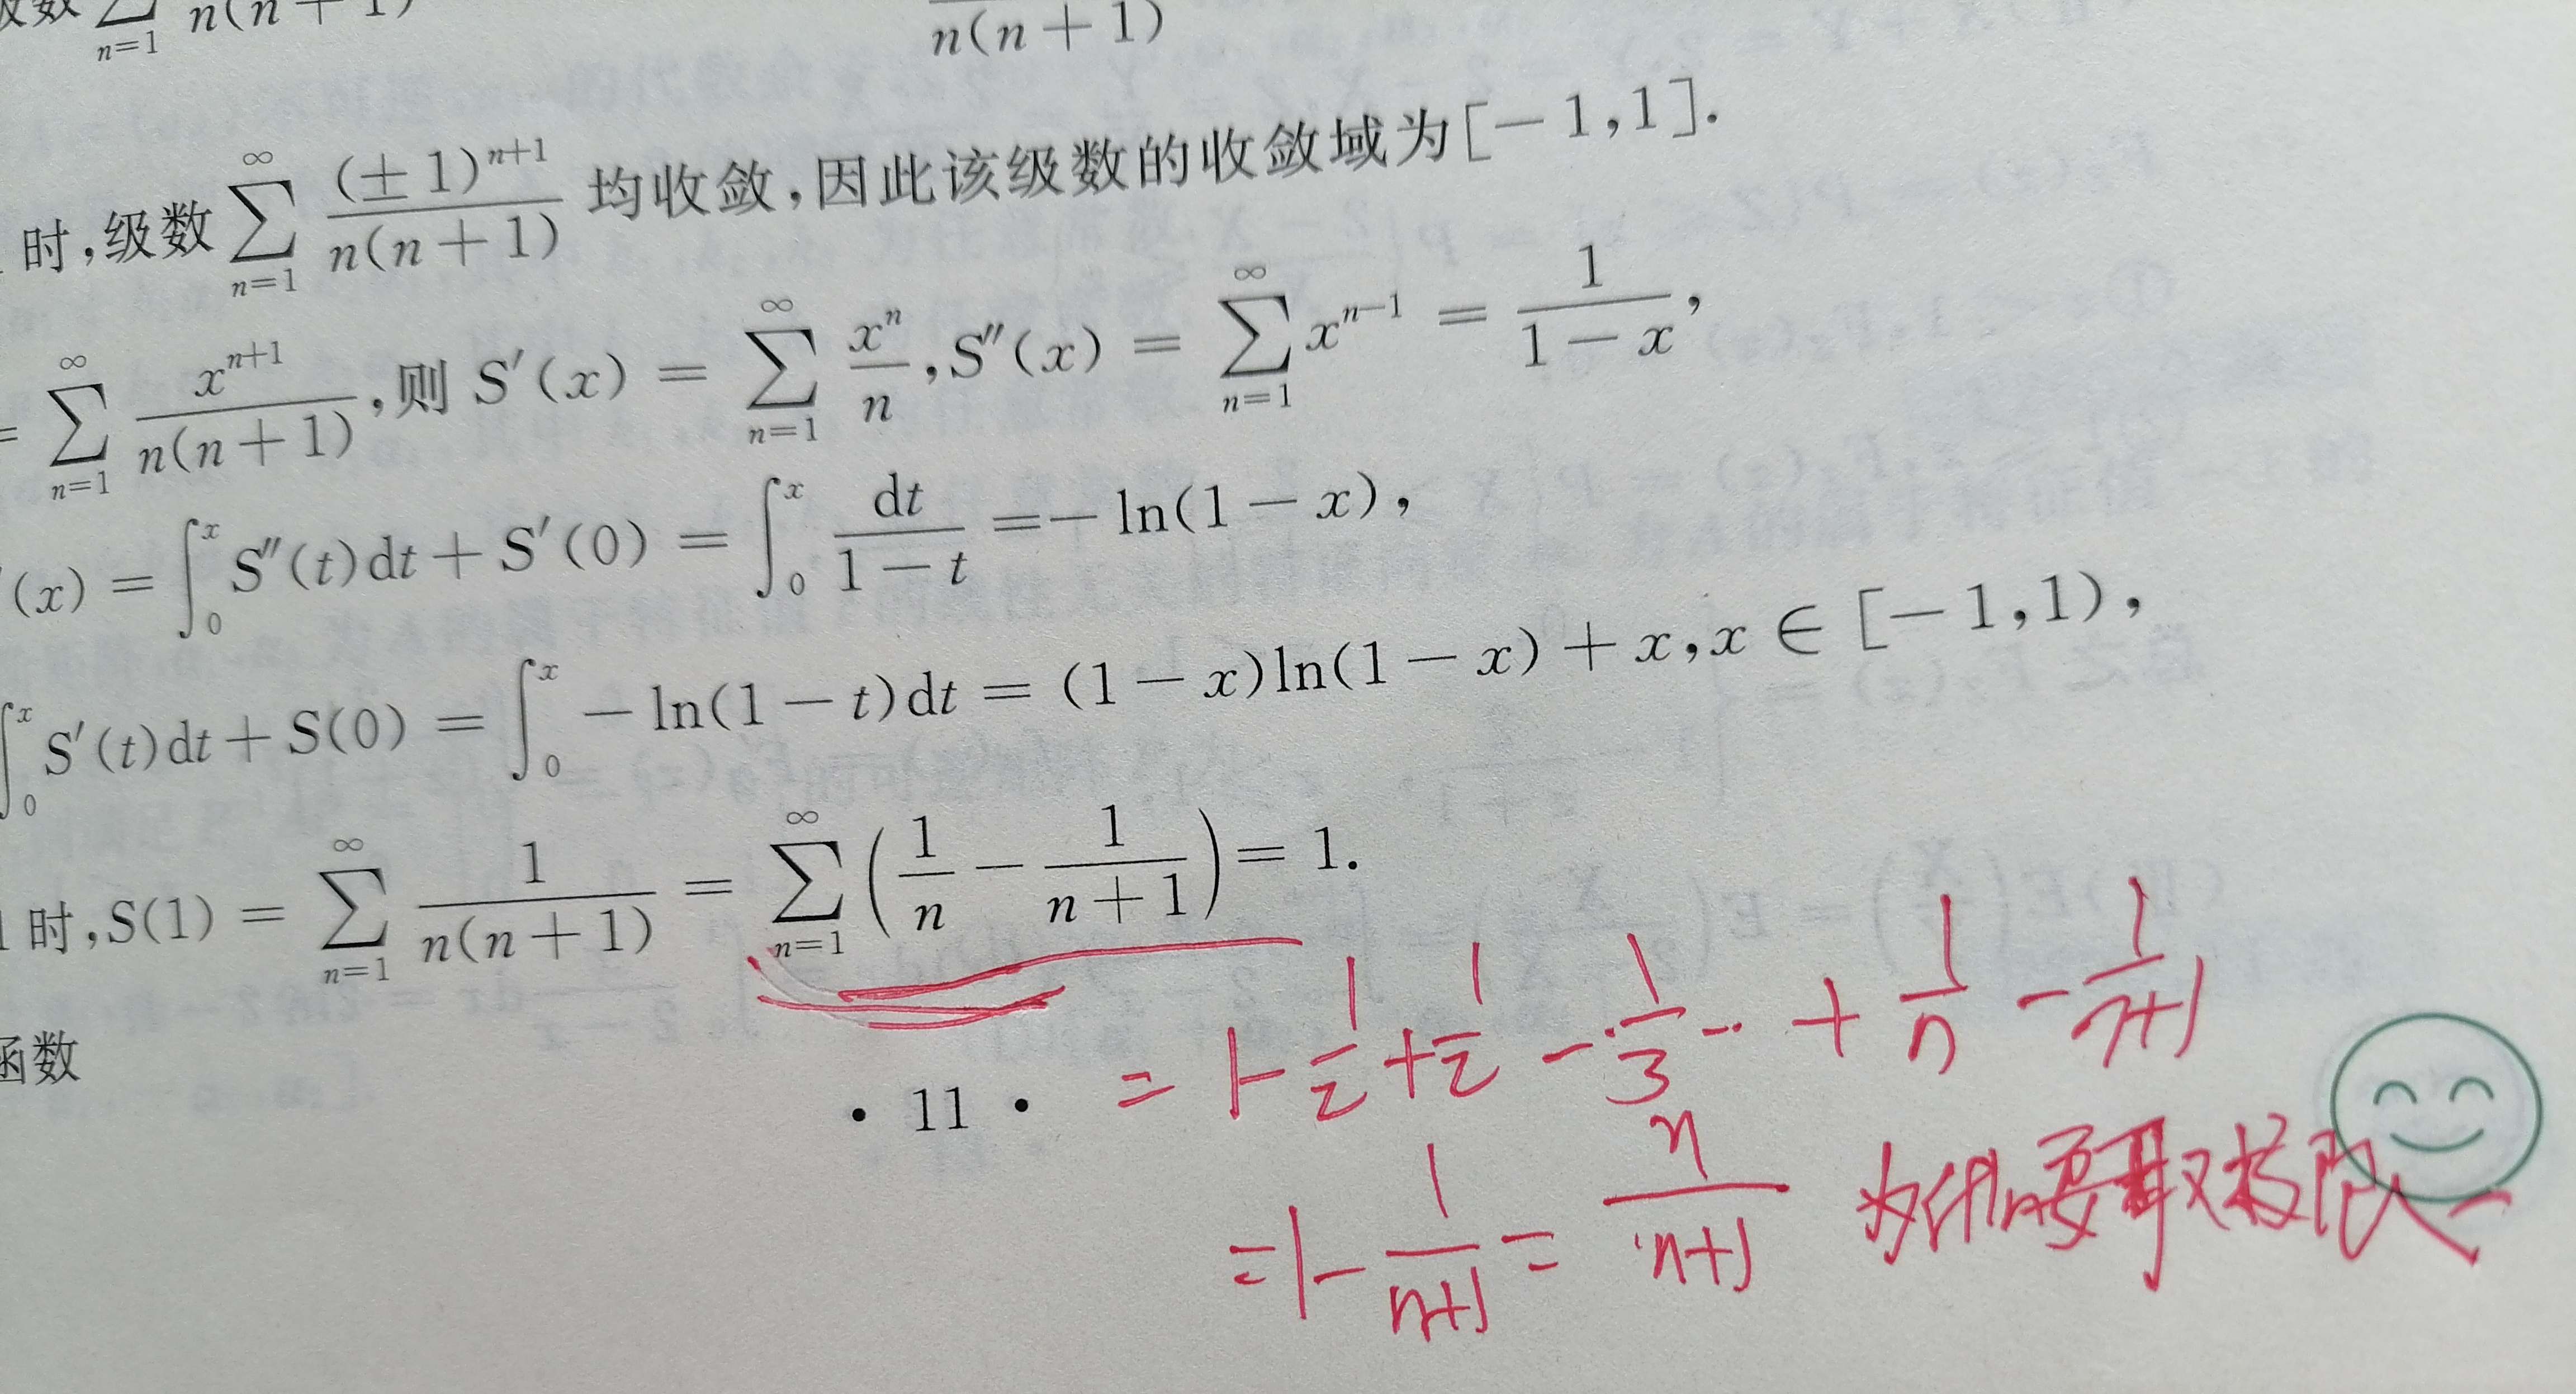 级数 ∑_{n=1} n(n+1)   n(n+1)
时,级数 ∑_{n=1}^{∞} \frac{(±1)^{n+1}}{n(n+1)} 均收敛,因此该级数的收敛域为[-1,1].
= ∑_{n=1}^{∞} \frac{x^{n+1}}{n(n+1)},则 S′(x) = ∑_{n=1}^{∞} \frac{x^n}{n},S″(x) = ∑_{n=1}^{∞} x^{n-1} = \frac{1}{1-x},
′(x) = ∫_0^x S″(t)dt + S′(0) = ∫_0^x \frac{dt}{1-t} = -ln(1-x),
∫_0^x S′(t)dt + S(0) = ∫_0^x -ln(1-t)dt = (1-x)ln(1-x) + x,x ∈ [-1,1),
1时,S(1) = ∑_{n=1}^{∞} \frac{1}{n(n+1)} = ∑_{n=1}^{∞} (\frac{1}{n} - \frac{1}{n+1}) = 1.
= 1 - \frac{1}{2} + \frac{1}{2} - \frac{1}{3} ·· + \frac{1}{n} - \frac{1}{n+1}
函数
· 11 ·
= 1 - \frac{1}{n+1} = \frac{n}{n+1} 为什么要取极限